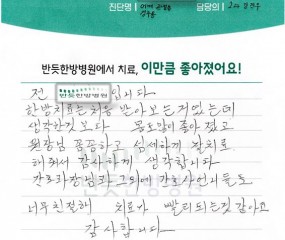 진단명 담당의
반듯한방병원에서 치료, 이만큼 좋아졌어요!
전 반듯한방병원 입니다
한방치료는 처음 받아보는거였는데
생각한것 보다 몸도많이좋아졌고
원장님 꼼꼼하고 섬세하게 잘치료
해줘서 감사하게 생각합니다
간호과장님과 그외에 간호사언니들도
너무친절하 치료가 빨리되는것 같아요
감사합니다